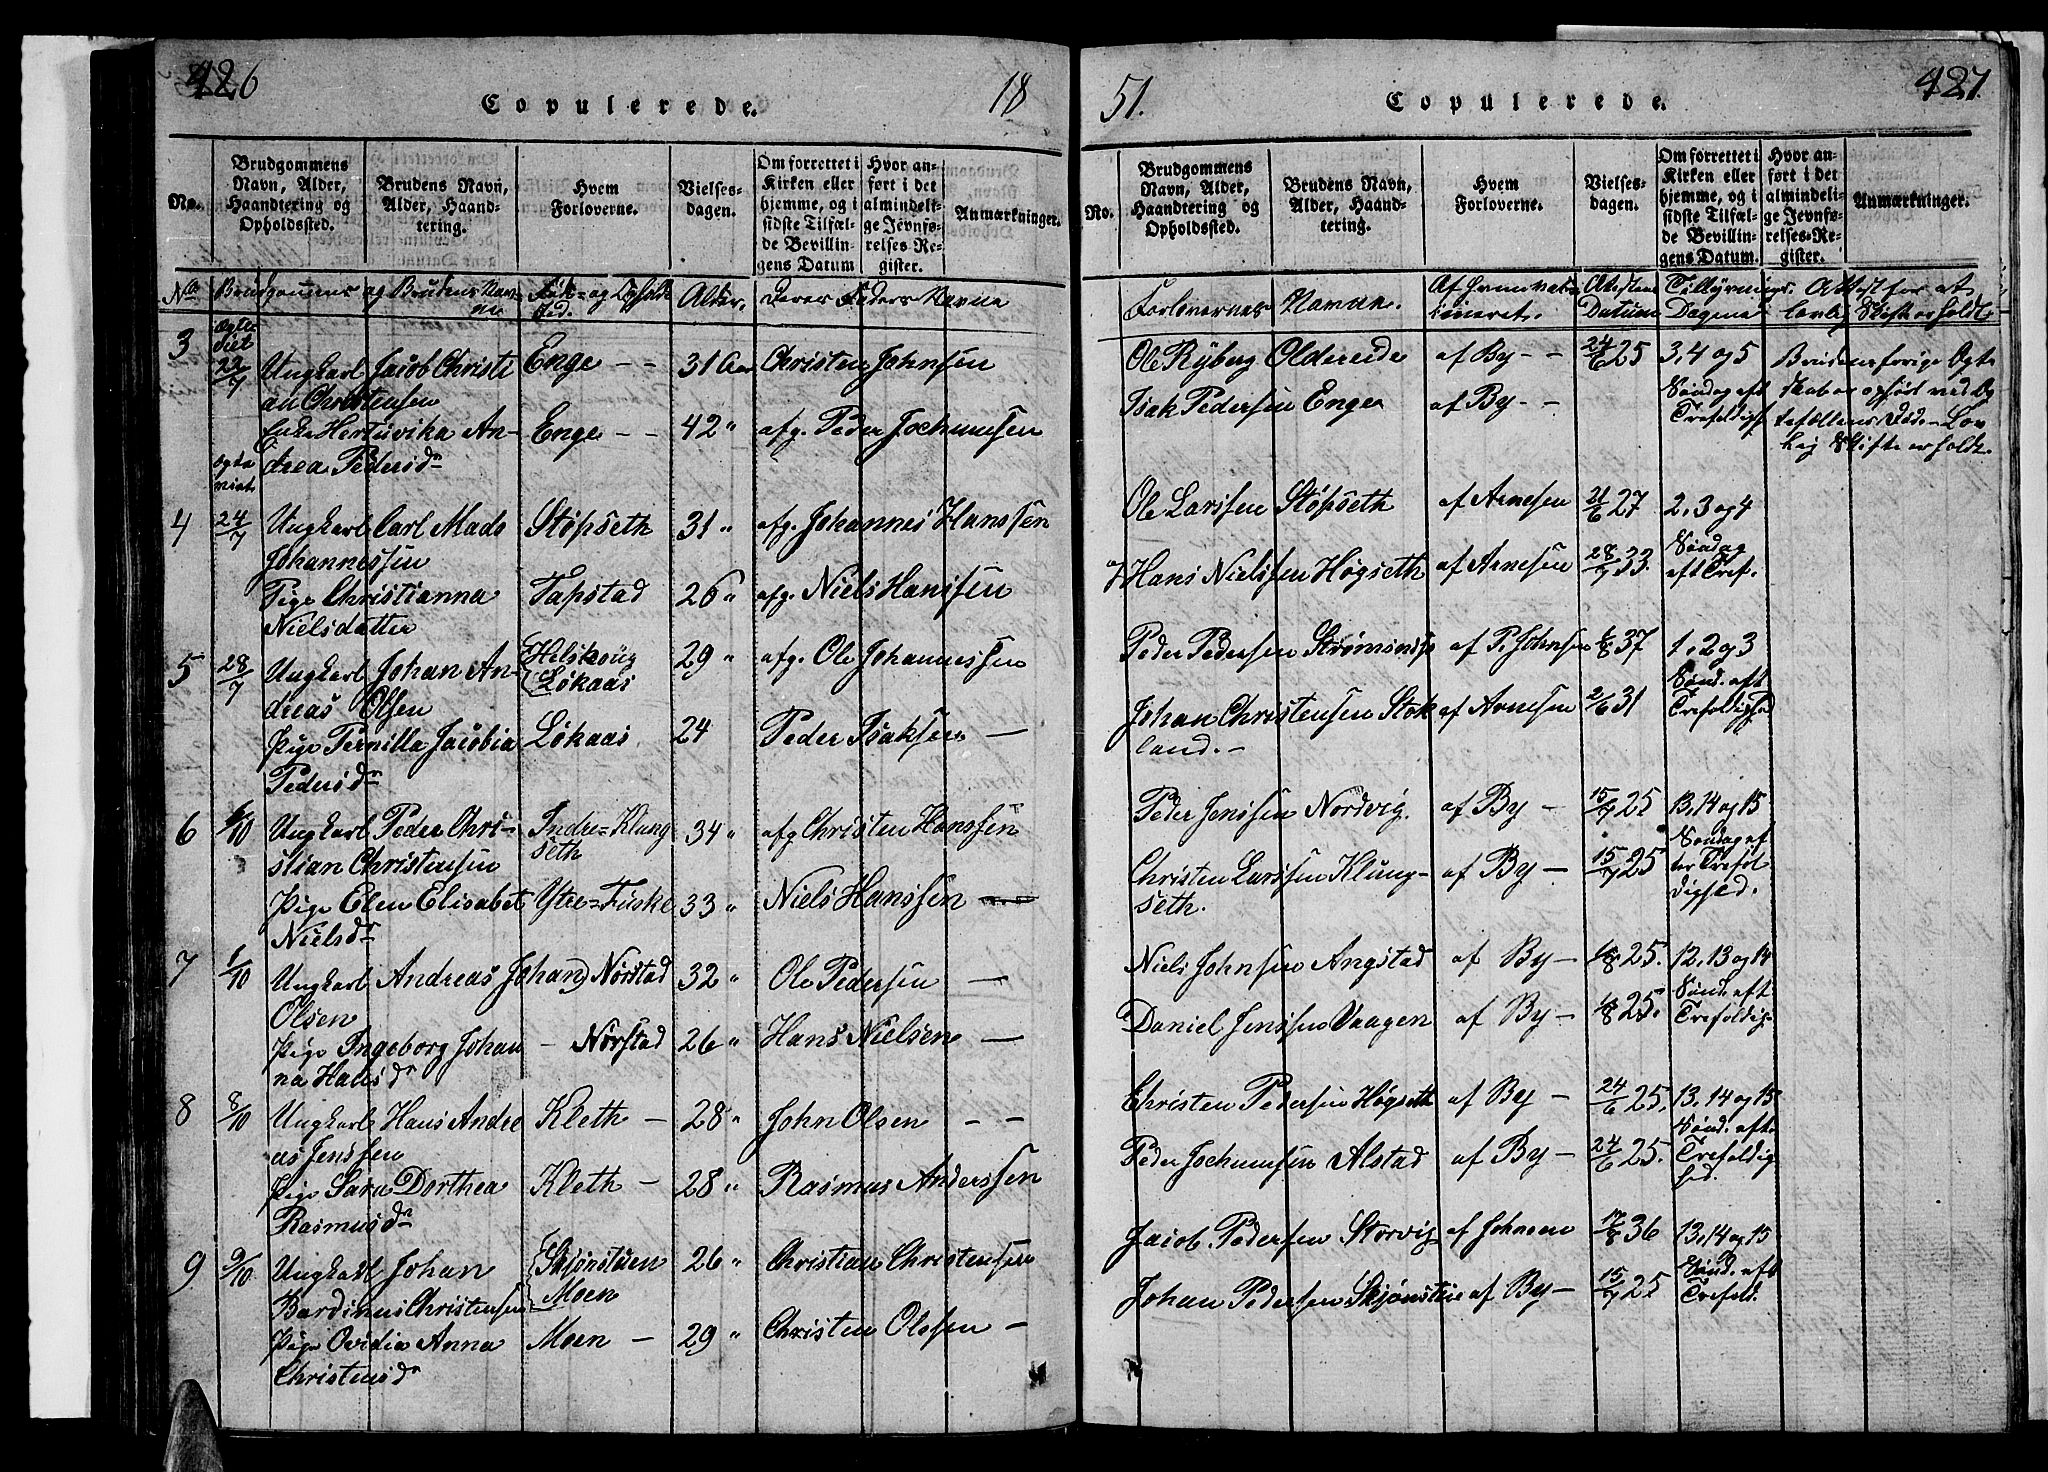 426
Copulerede.
18
No.
Brudgommens Navn, Alder, Haandtering og Opholdssted.
Brudens Navn, Alder, Haandtering.
Hvem Forloverne.
Vielsesdagen.
Om forrettet i Kirken eller hjemme, og i sidste Tilfælde Bevillingens Datum
Hvor anført i det almindelige Jevnførelses-Register.
Anmærkninger.
No Brudgommens og Brudens Navne
Føde- og Opholdssted.
Alder.
Deres Fædres Navne
3
22/7
Ungkarl Jacob Christian Christensen
Enge
31 Aar
Christen Johnsen
Enke Hertuvika Andrea Pedersdr
Enge
42 "
afg. Peder Jochumsen
4
24/7
Ungkarl Carl Mads Johannessen
Støpseth
31 "
afg. Johannes Hanssen
Pige Christianna Nielsdatter
Tapstad
26 "
afg. Niels Hanssen
5
28/7
Ungkarl Johan Andreas Olsen
Løkaas
29 "
afg. Ole Johannessen
Pige Pernilla Jacobia Pedersdr
Løkaas
24
Peder Isaksen
6
6/10
Ungkarl Peder Christian Christensen
Indre-Klungseth
34 "
afg Christen Hanssen
Pige Elen Elisabet Nielsdr
Ytre-Fuske
33 "
Niels Hanssen
7
6/10
Ungkarl Andreas Johan Olsen
Nørstad
32 "
Ole Pedersen
Pige Ingeborg Johanna Hansdr
Nørstad
26 "
Hans Nielsen
8
8/10
Ungkarl Hans Andreas Jenssen
Kleth
28 "
John Olsen
Pige Sara Dorthea Rasmusdr
Kleth
28 "
Rasmus Anderssen
9
9/10
Ungkarl Johan Bardinus Christensen
Skjønstuen
Moen
26 "
Christian Christensen
Pige Ovidia Anna Christensdr
Moen
29 "
Christen Olssen
51.
Copulerede.
427.
No.
Brudgommens Navn, Alder, Haandtering og Opholdssted.
Brudens Navn, Alder, Haandtering.
Hvem Forloverne.
Vielsesdagen.
Om forrettet i Kirken eller hjemme, og i sidste Tilfælde Bevillingens Datum.
Hvor anført i det almindelige Jevnførelses-Register.
Anmærkninger.
Forlovernes Navne.
Af hvem
Datum
Tillysnings Dagene
Attest for at lovlig Skift er holdt
Ole Ryberg Oldereide
af By
24/6 25
3, 4 og 5
Søndag eft Trefoldigh
Isak Pedersen Enge
af By
Brudens forige Ægteskab er ophørt ved Ægtefællens Død. Lovlig Skifte er holdt.
Ole Larssen Støpseth
af Arnesen
21/6 27
2, 3 og 4
Søndag eft Tref.
Hans Nielssen Høgseth
af Arnesen
28/7 33.
Peder Pedersen
af P. Johnsen
6/8 37
1, 2 og 3
Sønd. eft Trefoldighed
Johan Christensen Stokland.
af Arnesen
2/6 31
Peder Jenssen Nordvig.
af By
15/7 25
13, 14 og 15
Søndag efter Trefoldighed.
Christen Larssen Klungseth.
af By
15/7 25
Niels Johnsen Angstad
af By
25.
12, 13 og 14
Sønd. eft Trefoldig.
Daniel Jenssen Vaagen
af By
25.
Christen Pedersen Høgseth
af By
24/6 25.
13, 14 og 15
Sønd. eft. Trefoldighed.
Peder Jochumsen Alstad
af By
24/6 25.
Jacob Pedersen Storvig
af Johnsen
17/8 36
13, 14 og 15
Sønd. eft Trefold.
Johan Pedersen Skjønstue
af By
15/7 25